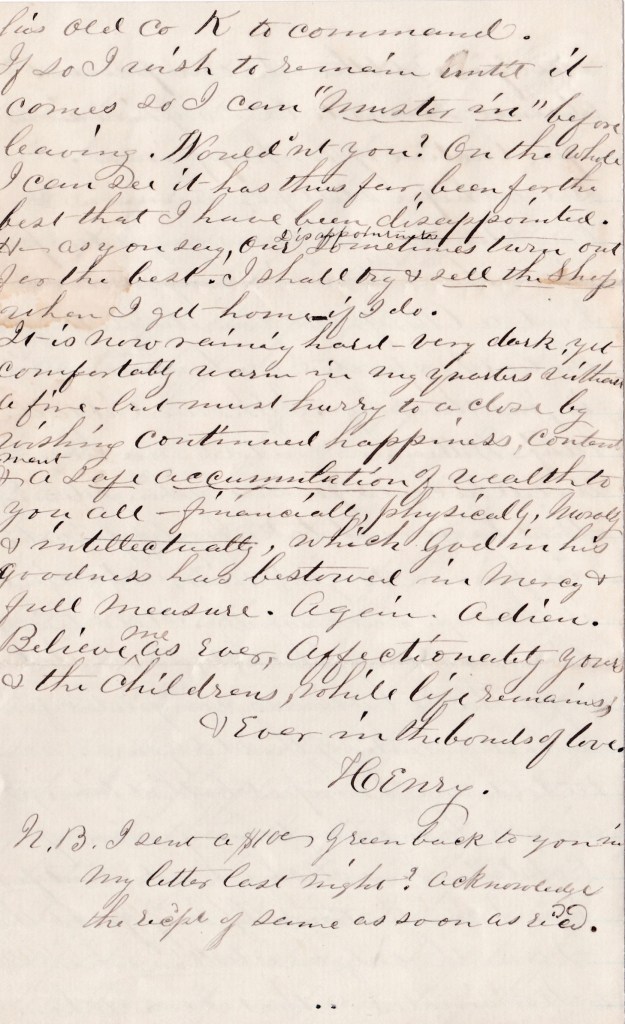 his old Co K to command.
If so I wish to remain until it
comes so I can "muster in" before
leaving. Would'nt you? On the whole
I can see it has thus far, been for the
best that I have been disappointed.
& as you say, our disappointments sometimes turn out
for the best. I shall try & sell the Ship
when I get home - if I do.
It is now raining hard - very dark, yet
comfortably warm in my quarters without
a fire - but must hurry to a close by
wishing continued happiness, content
ment
& a safe accumulation of wealth to
you all - financially, physically, morally
& intellectually, which God in his
goodness has bestowed in mercy &
full measure. Again. Adieu.
Believe me as Ever, Affectionately yours
& the Childrens, while life remains,
& Ever in the bonds of love.
Henry.
N.B. I sent a Green back to you in
my letter last night? acknowledge
the recpt of same as soon as rec'd.